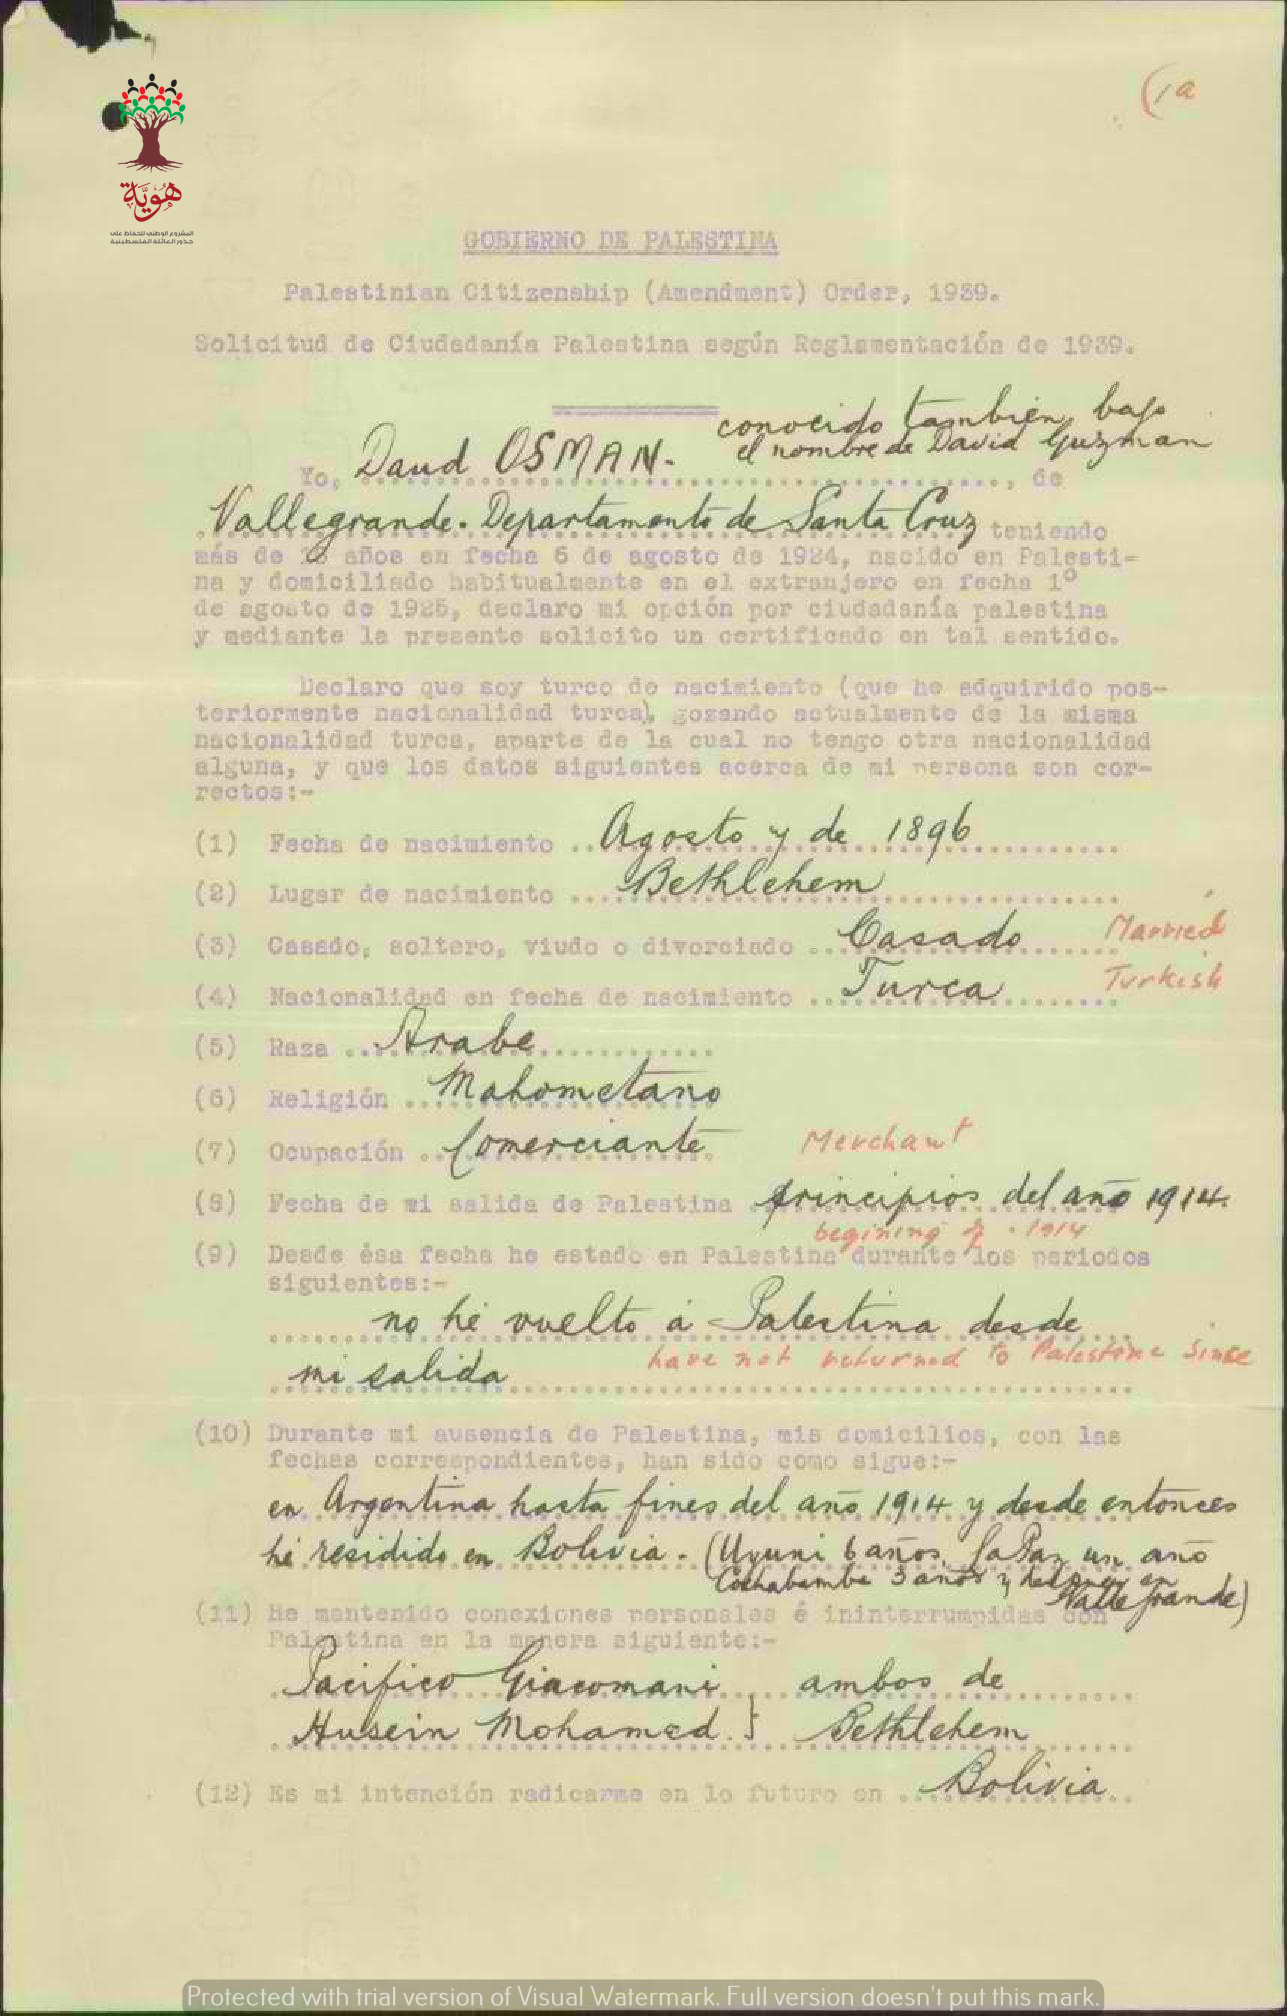 (1a
هويّة
المشروع الوطني للحفاظ على
جذور العائلة الفلسطينية
GOBIERNO DE PALESTINA
Palestinian Citizenship (Amendment) Order, 1939.
Solicitud de Ciudadanía Palestina según Reglamentación de 1939.
conocido también bajo
el nombre de David Guzman
Yo, Daud OSMAN. , de
Vallegrande. Departamento de Santa Cruz teniendo
más de 18 años en fecha 6 de agosto de 1924, nacido en Palesti-
na y domiciliado habitualmente en el extranjero en fecha 1º
de agosto de 1925, declaro mi opción por ciudadanía palestina
y mediante la presente solicito un certificado en tal sentido.
Declaro que soy turco de nacimiento (que he adquirido pos-
teriormente nacionalidad turca), gozando actualmente de la misma
nacionalidad turca, aparte de la cual no tengo otra nacionalidad
alguna, y que los datos siguientes acerca de mi persona son cor-
rectos:-
(1) Fecha de nacimiento .. Agosto y de 1896
(2) Lugar de nacimiento ... Bethlehem
(3) Casado, soltero, viudo o divorciado .. Casado Married
(4) Nacionalidad en fecha de nacimiento .. Turca Turkish
(5) Raza .. Arabe
(6) Religión .. Mahometano
(7) Ocupación .. Comerciante Merchant
(8) Fecha de mi salida de Palestina principios del año 1914.
begining of 1914
(9) Desde ésa fecha he estado en Palestina durante los periodos
siguientes:-
no hé vuelto á Palestina desde
have not returned to Palestine since
mi salida
(10) Durante mi ausencia de Palestina, mis domicilios, con las
fechas correspondientes, han sido como sigue:-
en Argentina hasta fines del año 1914 y desde entonces
hé residido en Bolivia. (Uyuni 6 años, La Paz un año
Cochabamba 3 años y despues en
Valle grande)
(11) He mantenido conexiones personales é ininterrumpidas con
Palestina en la manera siguiente:-
Pacifico Giacomani ambos de
Husein Mohamed. } Bethlehem
(12) Es mi intención radicarme en lo futuro en .. Bolivia
Protected with trial version of Visual Watermark. Full version doesn't put this mark.